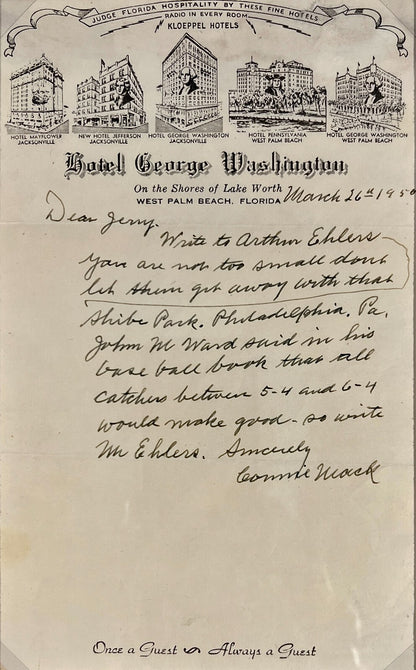 JUDGE FLORIDA HOSPITALITY BY THESE FINE HOTELS
RADIO IN EVERY ROOM
KLOEPPEL HOTELS
HOTEL MAYFLOWER
JACKSONVILLE
NEW HOTEL JEFFERSON
JACKSONVILLE
HOTEL GEORGE WASHINGTON
JACKSONVILLE
HOTEL PENNSYLVANIA
WEST PALM BEACH
HOTEL GEORGE WASHINGTON
WEST PALM BEACH
Hotel George Washington
On the Shores of Lake Worth
WEST PALM BEACH, FLORIDA March 26th 1950
Dear Jerry.
Write to Arthur Ehlers
you are not too small dont
let them get away with that
Shibe Park. Philadelphia. Pa.
John M Ward said in his
base ball book that all
catchers between 5-4 and 6-4
would make good - so write
Mr Ehlers. Sincerely
Connie Mack
Once a Guest Always a Guest